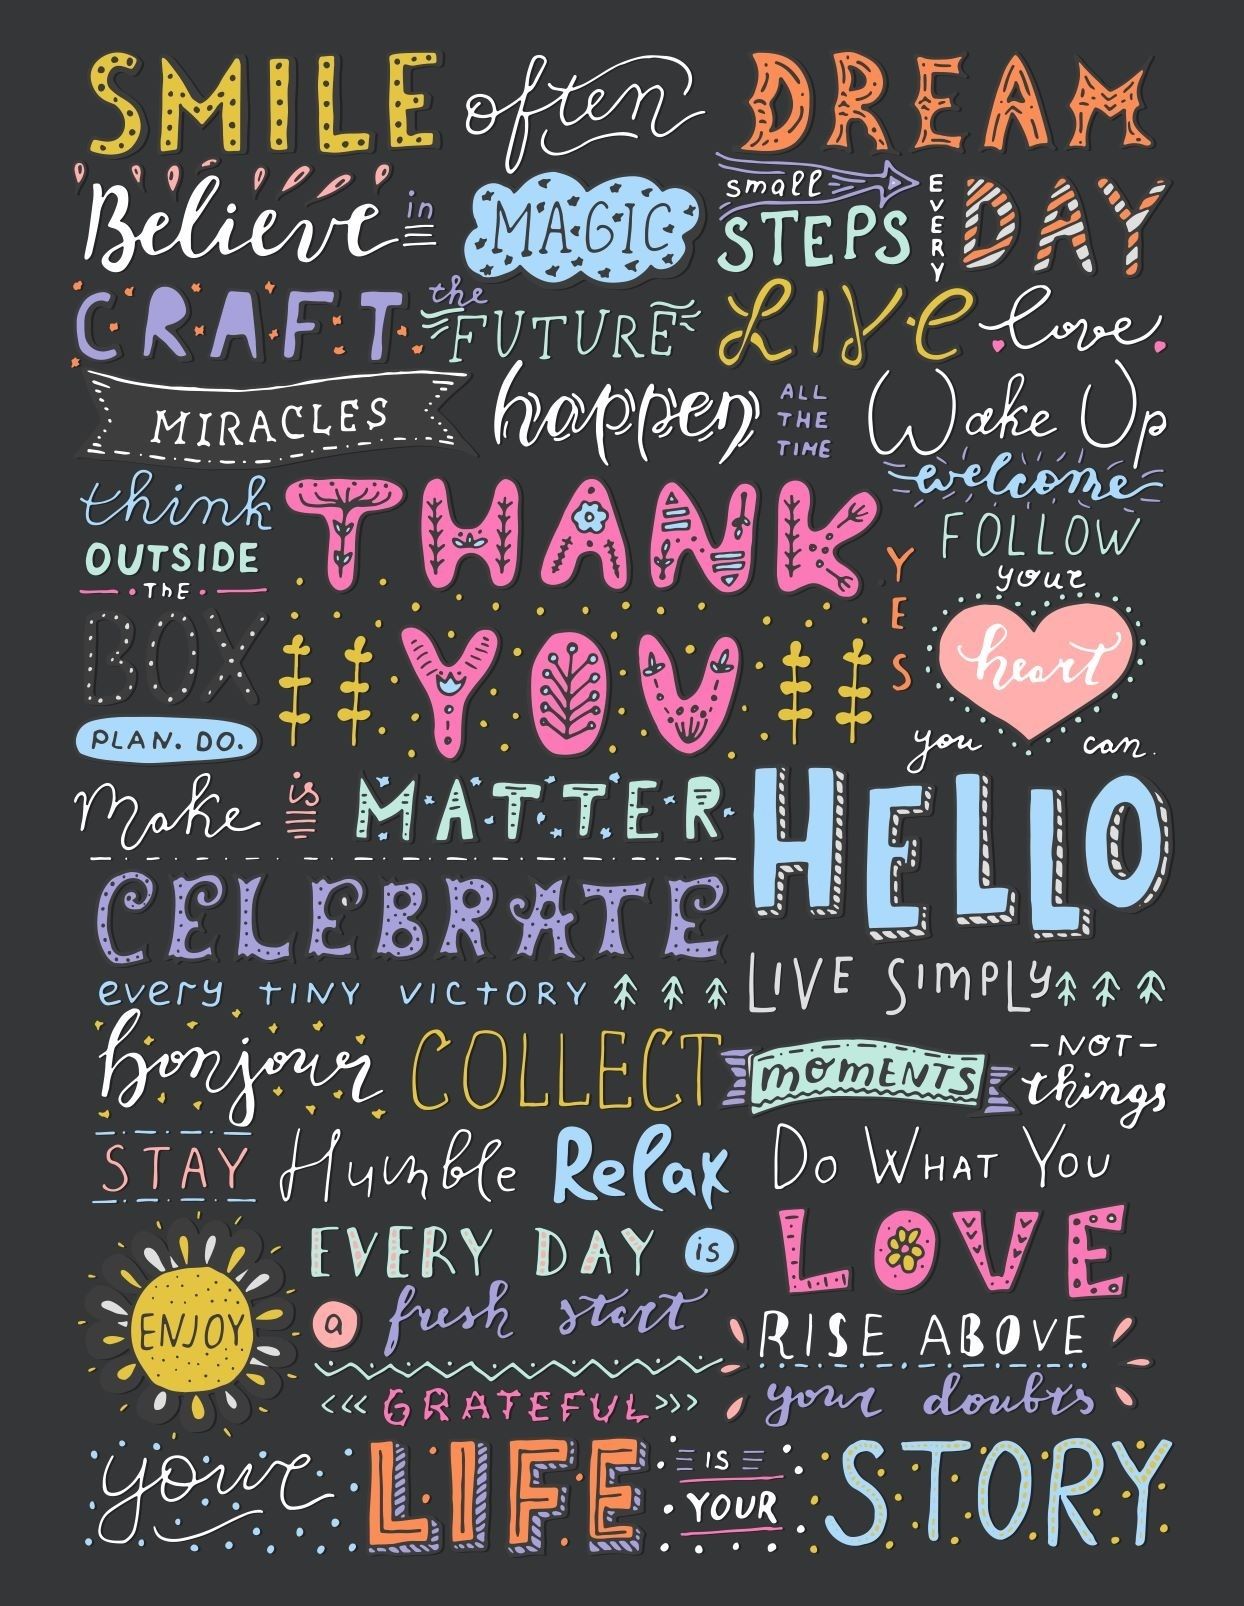 SMILE often DREAM
Believe in MAGIC small STEPS EVERY DAY
CRAFT the FUTURE LIVE love
MIRACLES happen ALL THE TIME Wake Up
welcome
think OUTSIDE THE BOX
THANK YOU
YES
FOLLOW your heart
PLAN. DO.
you can
Make is MATTER HELLO
CELEBRATE
every TINY VICTORY LIVE SIMPLY
bonjour COLLECT MOMENTS -NOT- things
STAY Humble Relax DO WHAT YOU LOVE
ENJOY
EVERY DAY is a fresh start
RISE ABOVE your doubts
<<< GRATEFUL >>>
your LIFE IS YOUR STORY